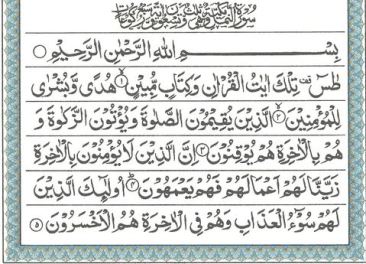 بِسْمِ اللهِ الرَّحْمٰنِ الرَّحِيْمِ
طٰسٓ تِلْكَ اٰيٰتُ الْقُرْاٰنِ وَكِتَابٍ مُّبِيْنٍ ۝۱ هُدًى وَّبُشْرٰى
لِلْمُؤْمِنِيْنَ ۝۲ الَّذِيْنَ يُقِيْمُوْنَ الصَّلٰوةَ وَيُؤْتُوْنَ الزَّكٰوةَ وَ
هُمْ بِالْاٰخِرَةِ هُمْ يُوْقِنُوْنَ ۝۳ اِنَّ الَّذِيْنَ لَا يُؤْمِنُوْنَ بِالْاٰخِرَةِ
زَيَّنَّا لَهُمْ اَعْمَالَهُمْ فَهُمْ يَعْمَهُوْنَ ۝۴ اُولٰٓئِكَ الَّذِيْنَ
لَهُمْ سُوْٓءُ الْعَذَابِ وَهُمْ فِى الْاٰخِرَةِ هُمُ الْاَخْسَرُوْنَ ۝۵